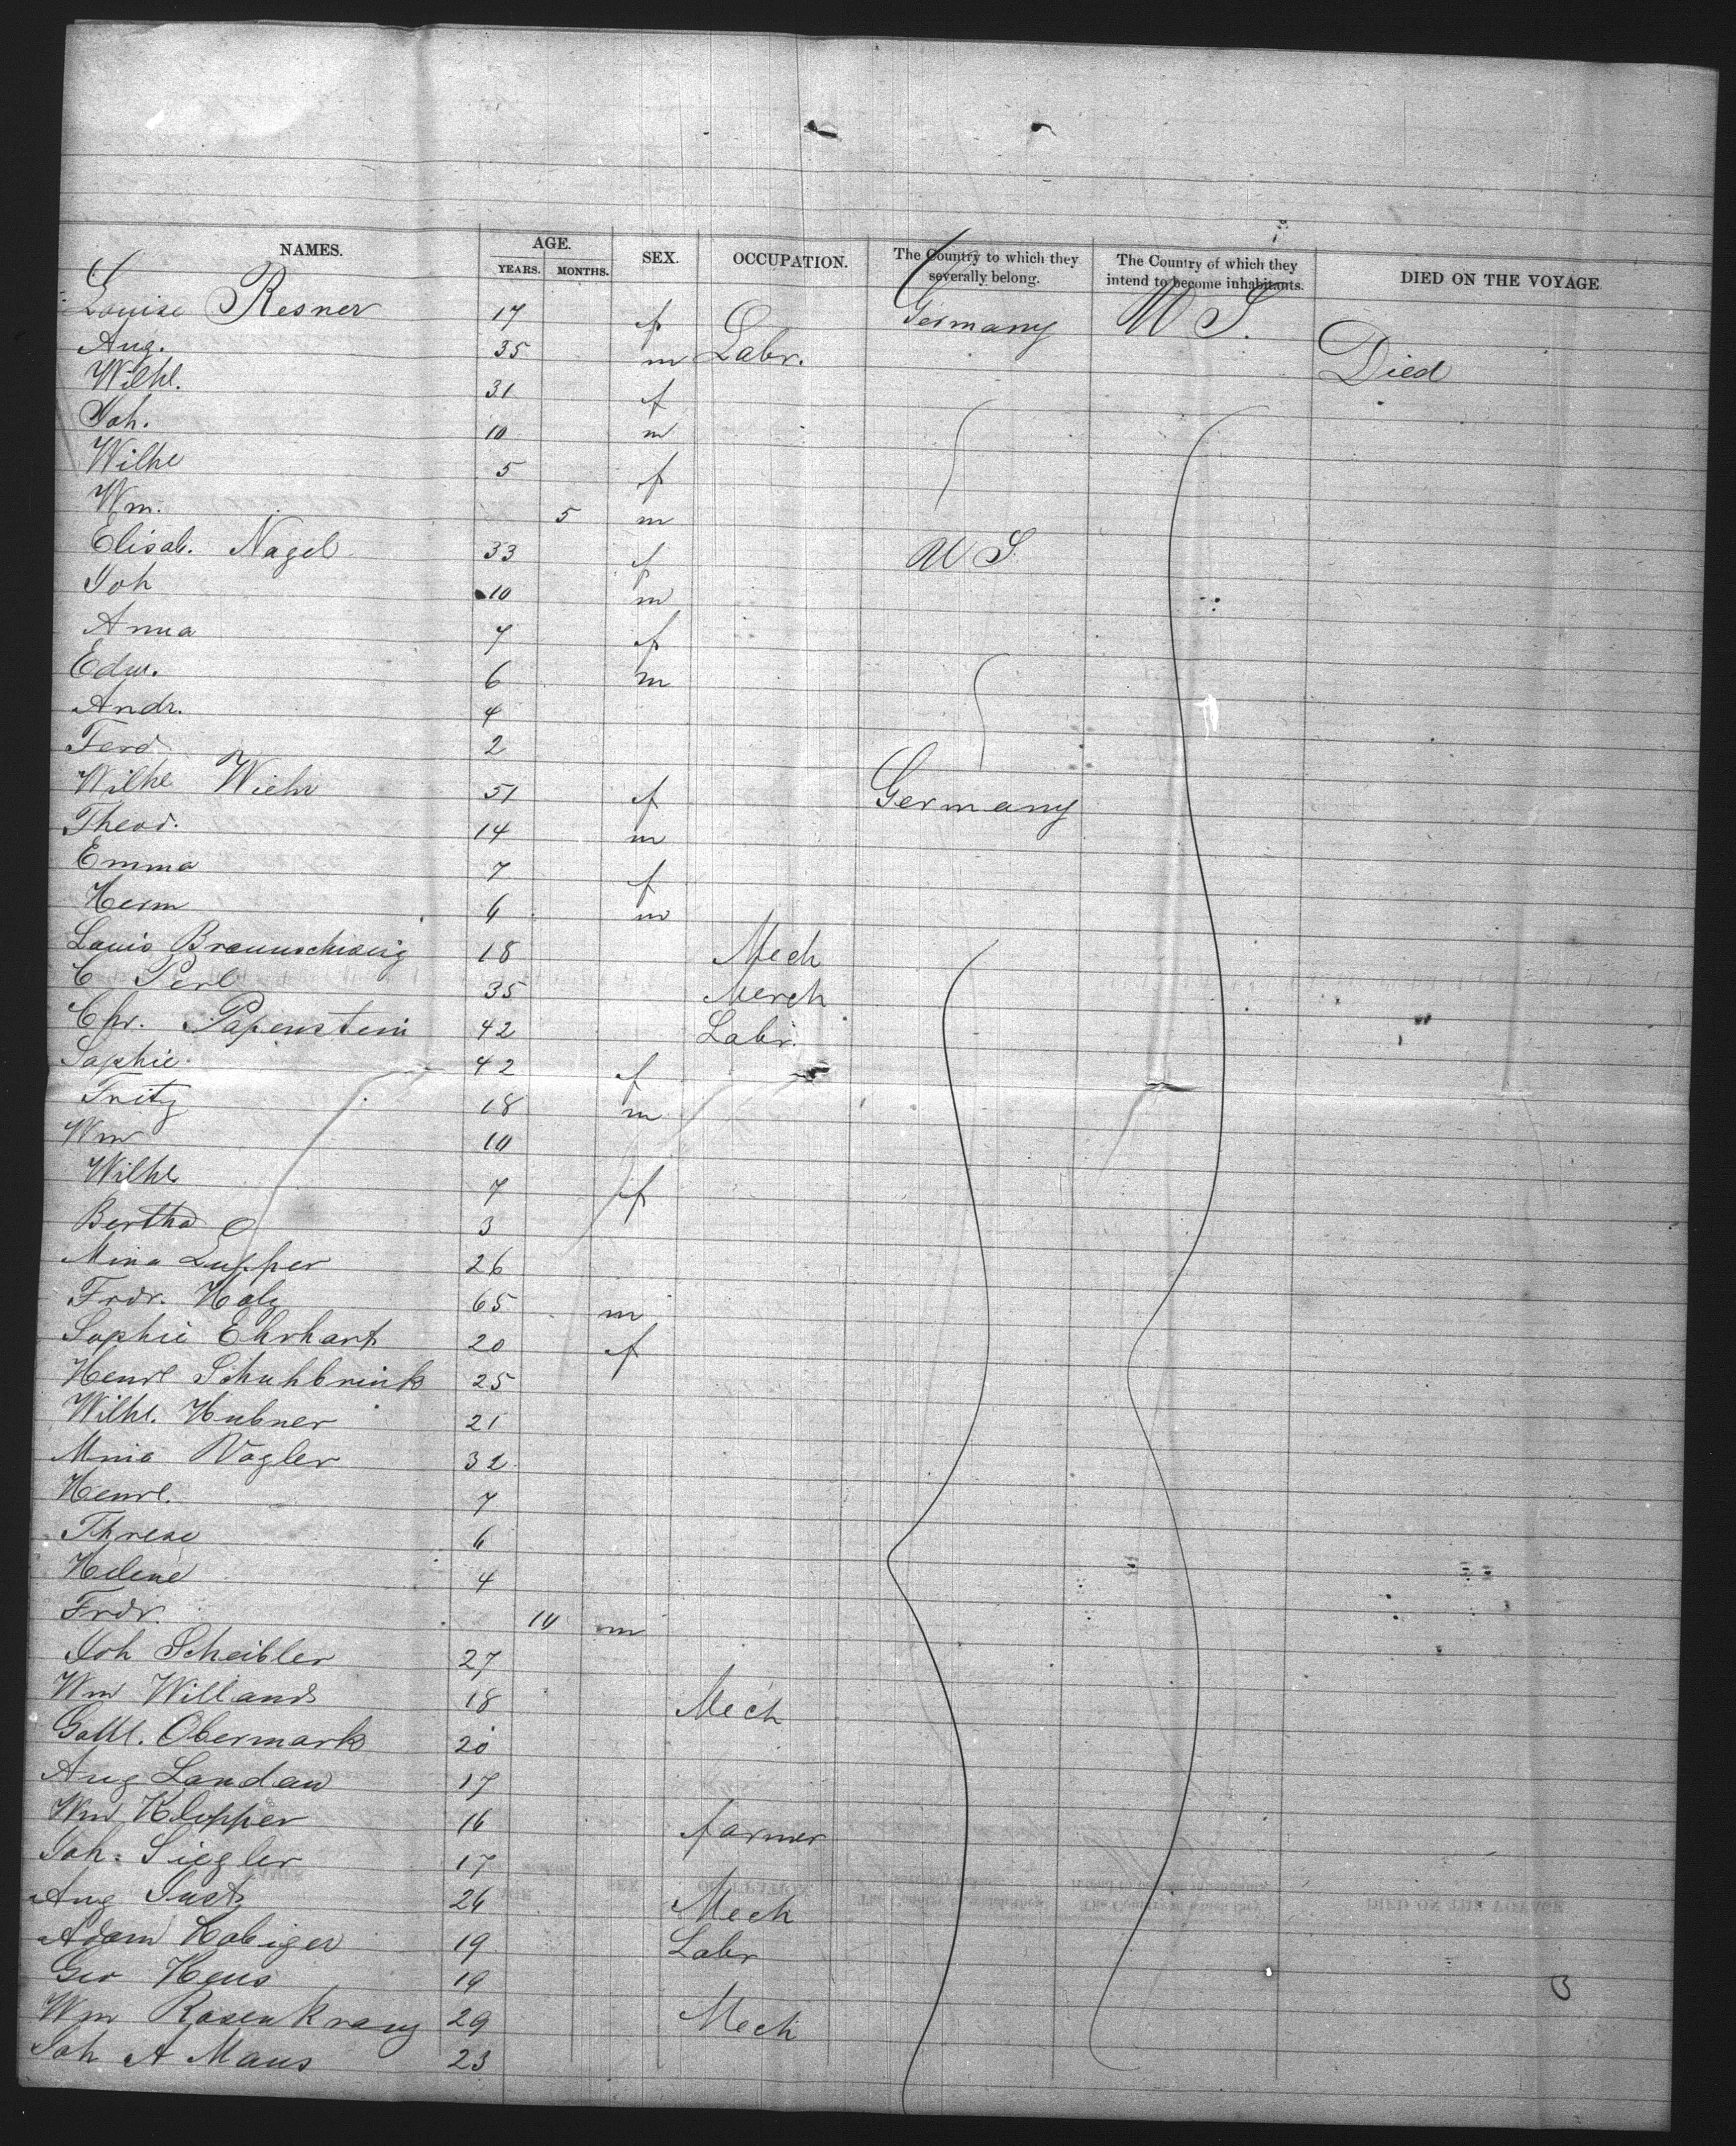 NAMES. AGE. SEX. OCCUPATION. The Country to which they severally belong. The Country of which they intend to become inhabitants. DIED ON THE VOYAGE
YEARS. MONTHS.
Louise Resner 17 f Germany U S.
Aug. 35 m Labr. Died
Wilhl. 31 f
Joh. 10 m
Wilhe 5 f
Wm. 5 m
Elisab. Nagel 33 f U S
Joh 10 m
Anna 7 f
Edw. 6 m
Andr. 4
Ferd 2
Wilhe Wiehr 51 f Germany
Theod. 14 m
Emma 7 f
Herm 6 m
Louis Braunschweig 18 Mech
C Perl 35 Merch
Chr. Papenstein 42 Labr.
Sophie 42 f
Fritz 18 m
Wm 10
Wilhl 7 f
Bertha 3
Mina 26
Frdr. Holz 65 m
Sophie Ehrhart 20 f
Henrl Schuhbrink 25
Wilhl. Hubner 21
Mina Vogler 32
Henrl. 7
Threse 6
Helene 4
Frdr. 10 m
Joh Scheibler 27
Wm Willands 18 Mech
Gottl. Obermark 20
Aug Landau 17
Wm Klopper 16 farmer
Joh. Siegler 17
Aug Just 26 Mech
Adam 19 Labr
Geo 19
Wm Rosenkranz 29 Mech
Joh A Maus 23